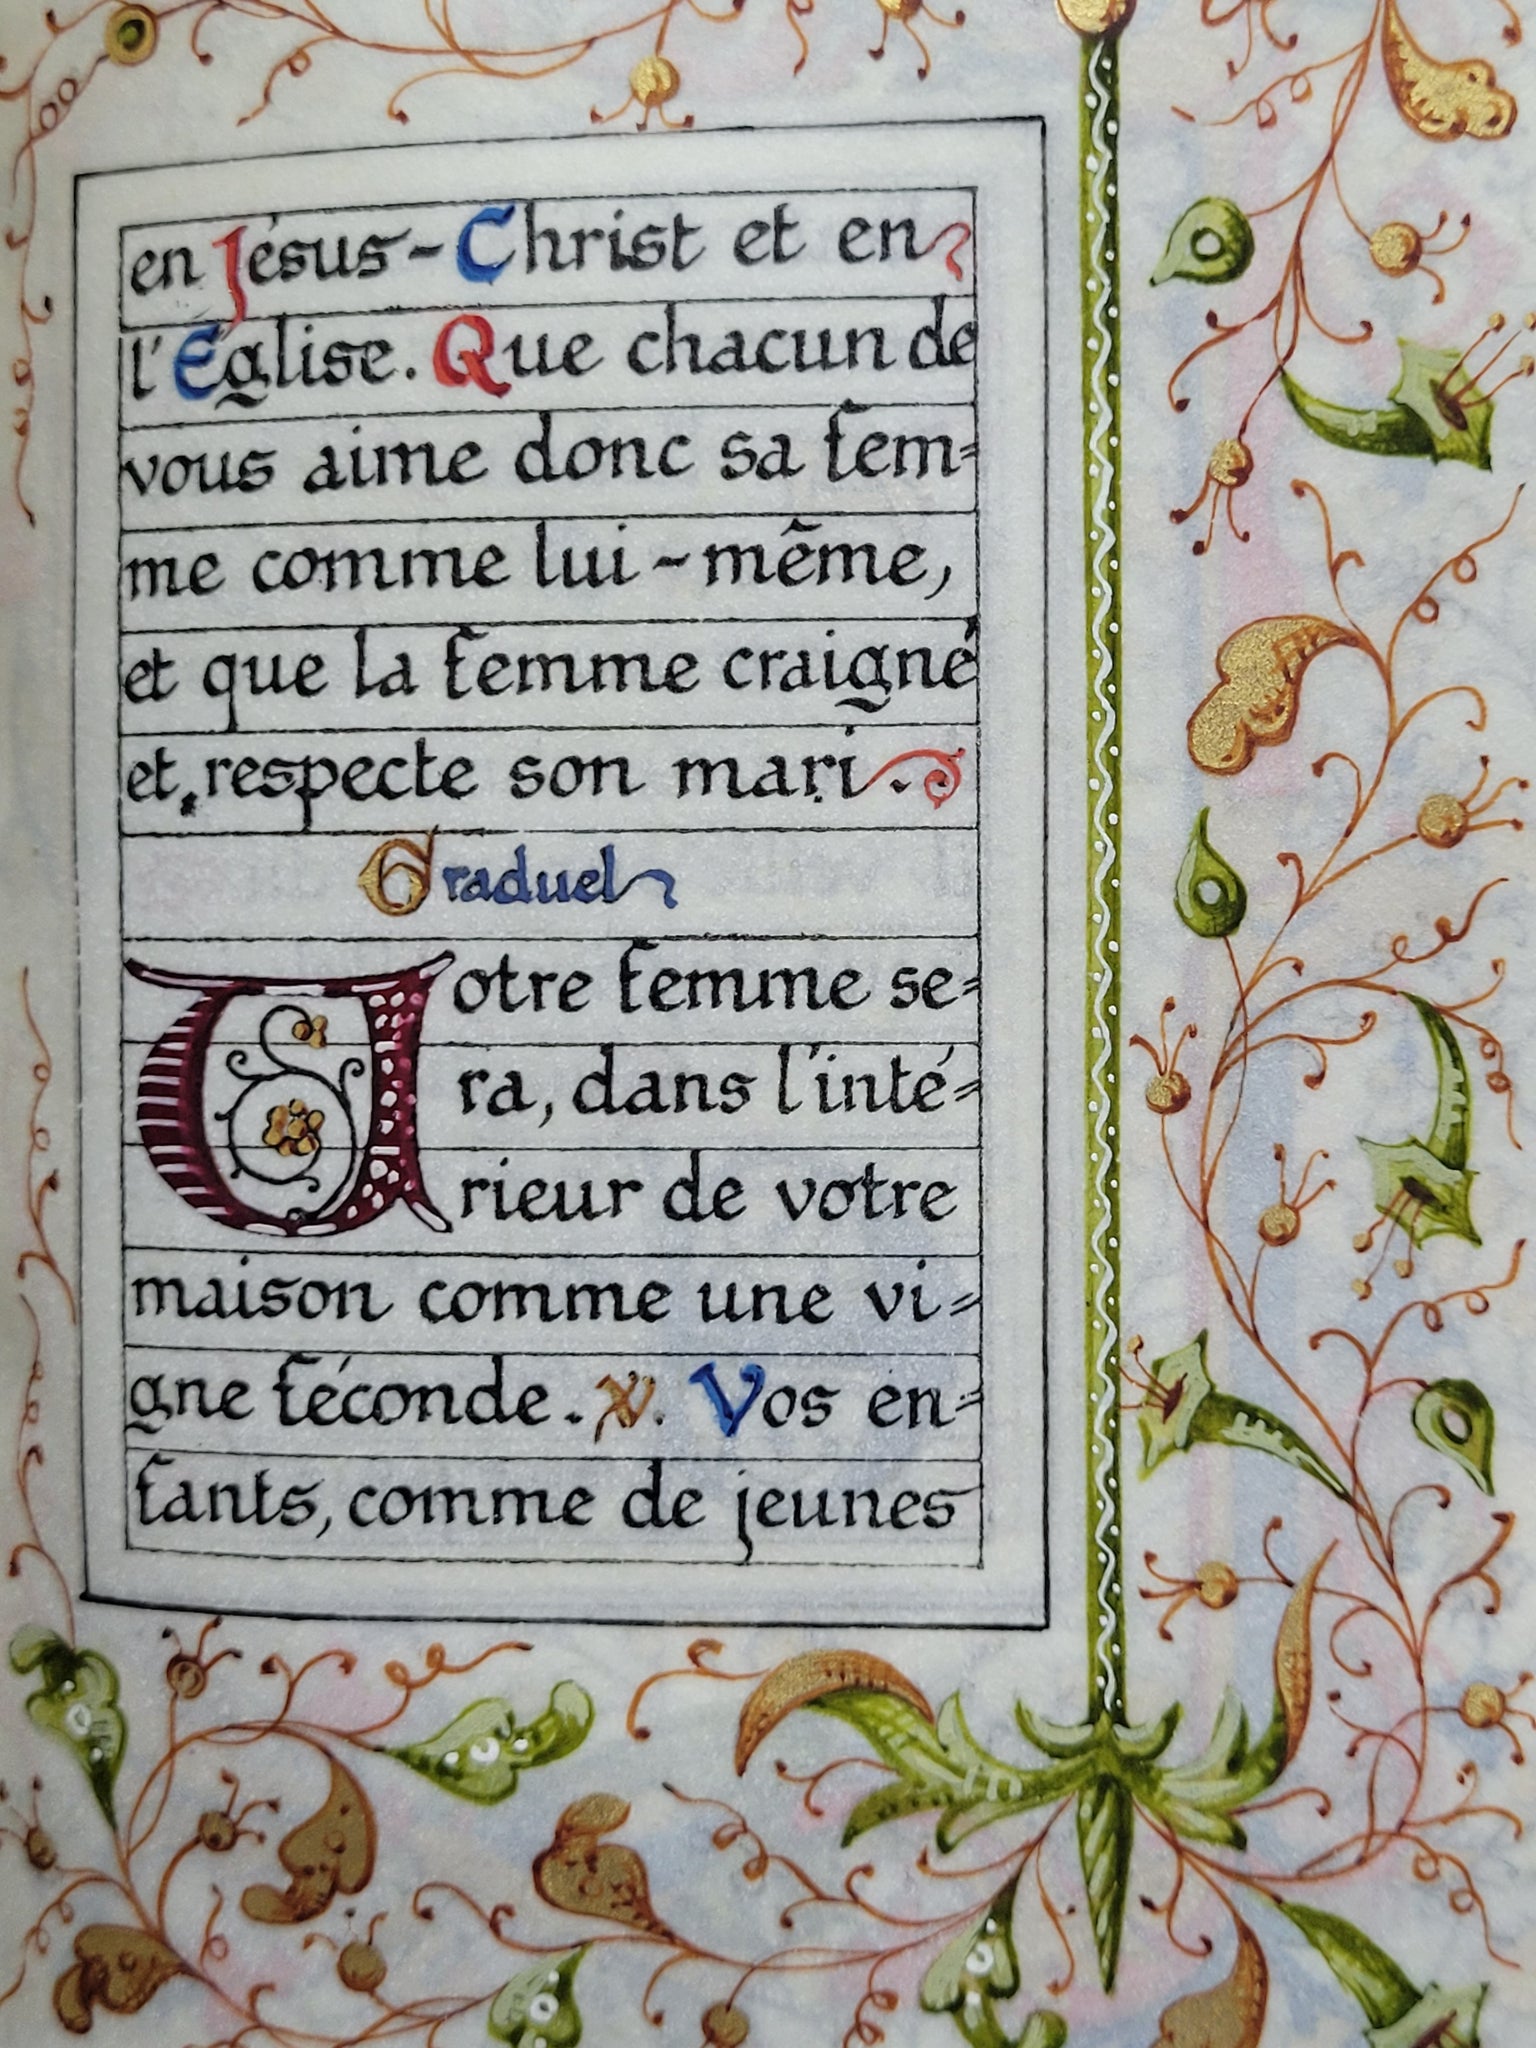 en Jésus-Christ et en
l'Église. Que chacun de
vous aime donc sa fem=
me comme lui-même,
et que la femme craigne
et, respecte son mari.
Graduel
Votre femme se=
ra, dans l'inté=
rieur de votre
maison comme une vi=
gne féconde. ℣. Vos en=
fants, comme de jeunes